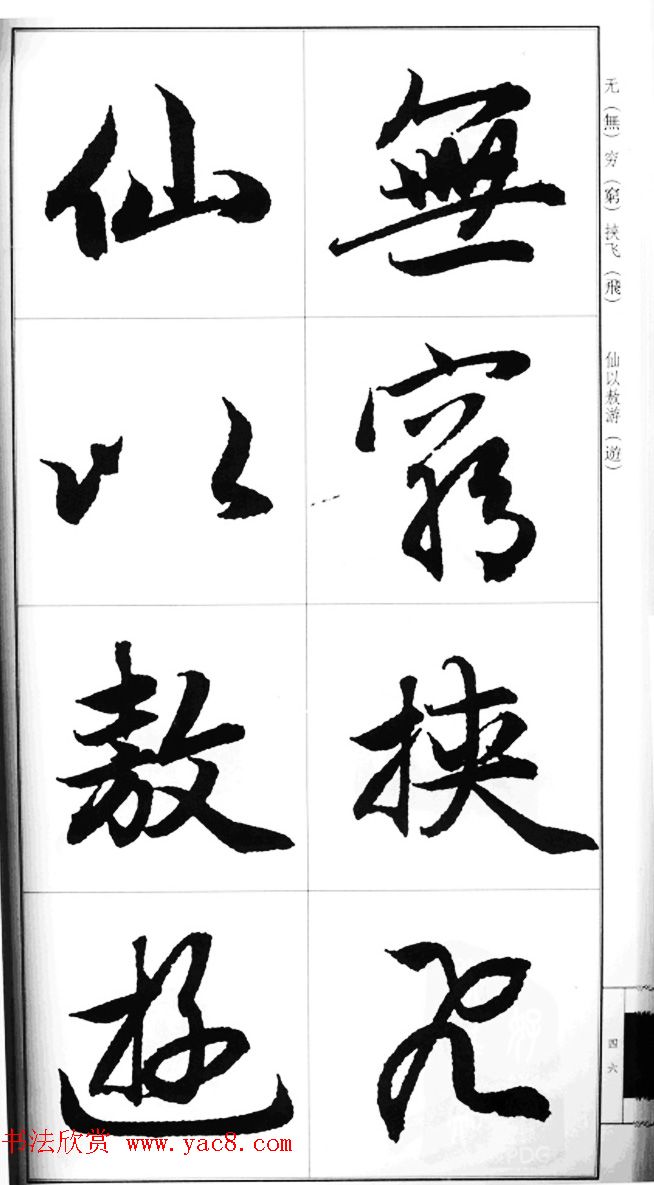 無窮挾飛
仙以敖遊
无（無）穷（窮）挟飞（飛） 仙以敖游（遊）
四六
书法欣赏 www.yac8.com
PDG